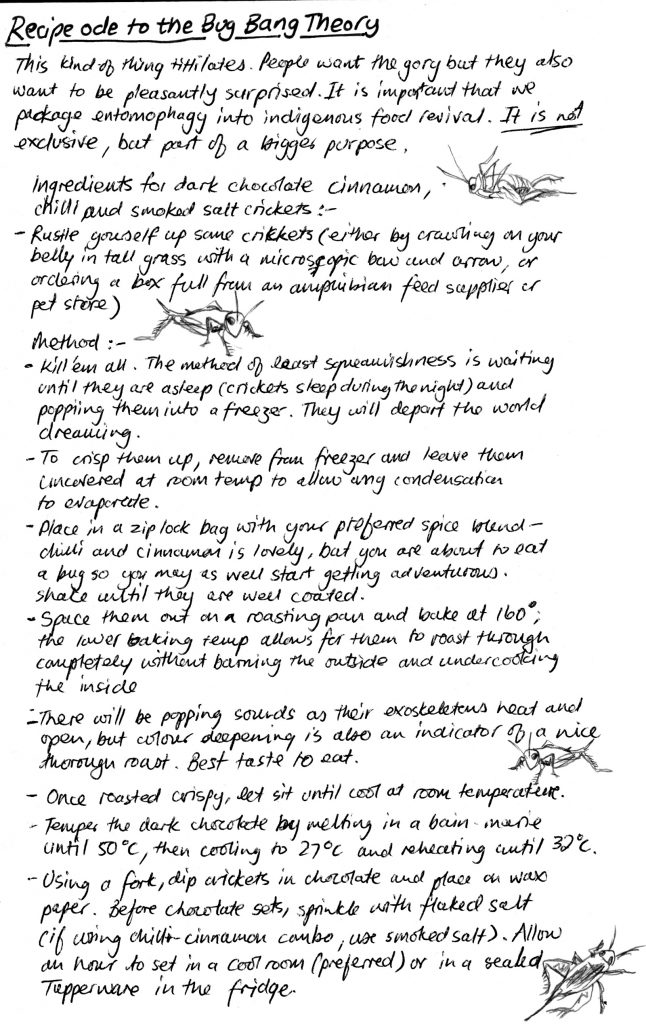 Recipe ode to the Bug Bang Theory
This kind of thing titillates. People want the gory but they also
want to be pleasantly surprised. It is important that we
package entomophagy into indigenous food revival. It is not
exclusive, but part of a bigger purpose.
Ingredients for dark chocolate cinnamon,
chilli and smoked salt crickets :-
- Rustle yourself up some crikkets (either by crawling on your
belly in tall grass with a microscopic bow and arrow, or
ordering a box full from an amphibian feed supplier or
pet store)
Method :-
- Kill 'em all. The method of least squeamishness is waiting
until they are asleep (crickets sleep during the night) and
popping them into a freezer. They will depart the world
dreaming.
- To crisp them up, remove from freezer and leave them
uncovered at room temp to allow any condensation
to evaporate.
- Place in a zip lock bag with your preferred spice blend -
chilli and cinnamon is lovely, but you are about to eat
a bug so you may as well start getting adventurous.
Shake until they are well coated.
- Space them out on a roasting pan and bake at 160°;
the lower baking temp allows for them to roast through
completely without burning the outside and undercooking
the inside
- There will be popping sounds as their exoskeletons heat and
open, but colour deepening is also an indicator of a nice
thorough roast. Best taste to eat.
- Once roasted crispy, let sit until cool at room temperature.
- Temper the dark chocolate by melting in a bain-marie
until 50°C, then cooling to 27°C and reheating until 32°C.
- Using a fork, dip crickets in chocolate and place on wax
paper. Before chocolate sets, sprinkle with flaked salt
(if using chilli-cinnamon combo, use smoked salt). Allow
an hour to set in a cool room (preferred) or in a sealed
Tupperware in the fridge.